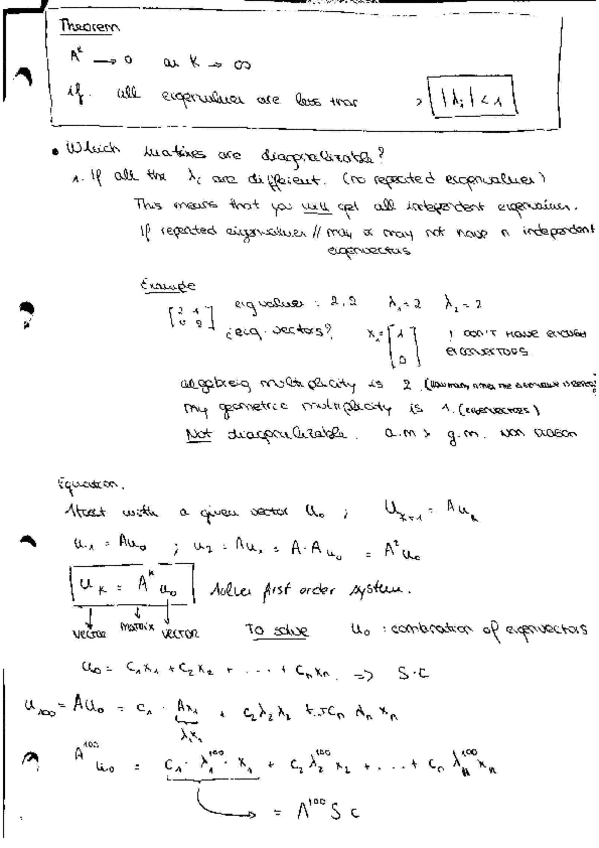 Theorem
A^k → 0 as K → ∞
if all eigenvalues are less than → |λi| < 1
• Which matrixes are diagonalizable?
1. If all the λi are different. (no repeated eigenvalues)
This means that you will get all independent eigenvalues.
If repeated eigenvalues // may or may not have n independent
eigenvectors
Example
[2 1
0 2] eigvalues : 2, 2 λ1 = 2 λ2 = 2
¿eig. vectors? x1 = [1
0] I DON'T HAVE ENOUGH
EIGENVECTORS
algebreig multiplicity is 2. (How many times the eigenvalue is
my geometric multiplicity is 1. (eigenvectors)
Not diagonalizable. a.m > g.m.
Equation.
Start with a given vector u0 ; u_{k+1} = A u_k
u1 = Au0 ; u2 = Au1 = A·A u0 = A² u0
u_k = A^k u0 Solves first order system.
VECTOR MATRIX VECTOR To solve u0 : combination of eigenvectors
u0 = c1 x1 + c2 x2 + . . . + cn xn. => S·c
u100 = Au0 = c1 · Ax1 + c2 λ2 λ2 + ... cn λn xn
λ1 x1
A^100 u0 = c1 · λ1^100 · x1 + c2 λ2^100 x2 + . . . + cn λn^100 xn
= Λ^100 S c